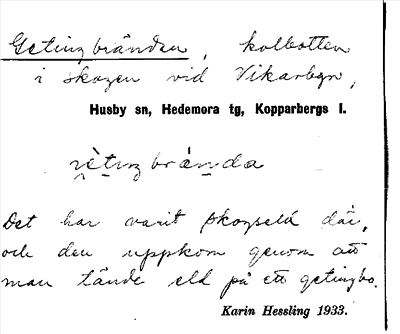 Getingbränden, kolbotten
i skogen vid Vikarbyn,
Husby sn, Hedemora tg, Kopparbergs l.
Det har varit skogseld där,
och den uppkom genom att
man tände eld på ett getingbo.
Karin Hessling 1933.